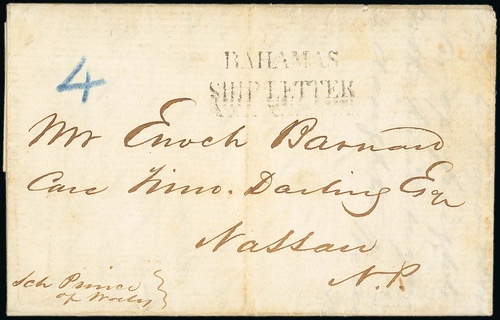 4
BAHAMAS
SHIP LETTER
Mr Enoch Barnard
Care Timo. Darling Esqr
Nassau
N.P.
Sch Prince
of